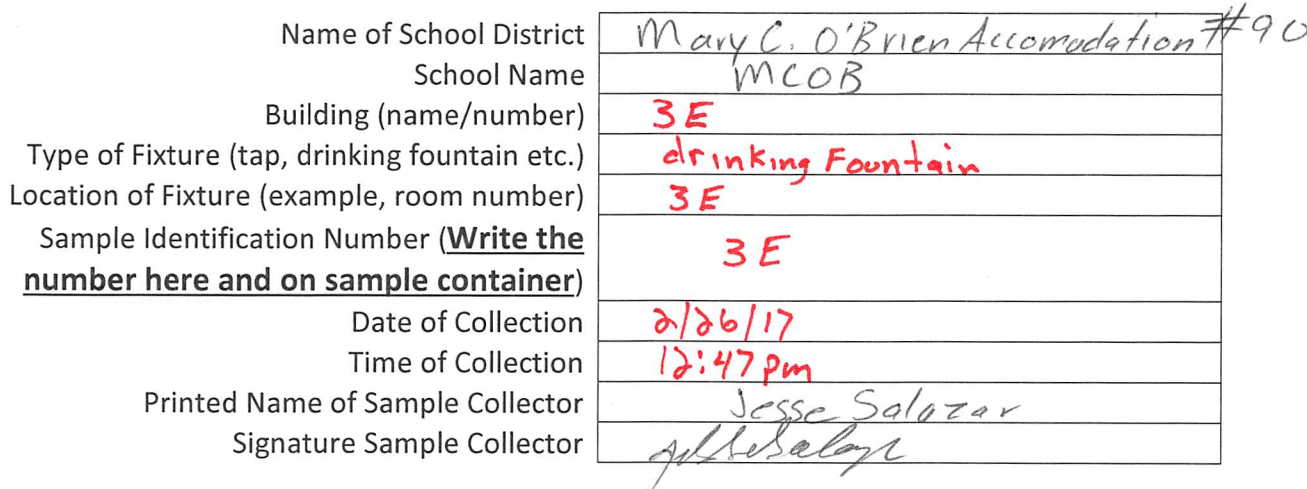 Name of School District Mary C. O'Brien Accomodation #90
School Name MCOB
Building (name/number) 3E
Type of Fixture (tap, drinking fountain etc.) drinking Fountain
Location of Fixture (example, room number) 3E
Sample Identification Number (Write the
number here and on sample container) 3E
Date of Collection 2/26/17
Time of Collection 12:47 pm
Printed Name of Sample Collector Jesse Salazar
Signature Sample Collector